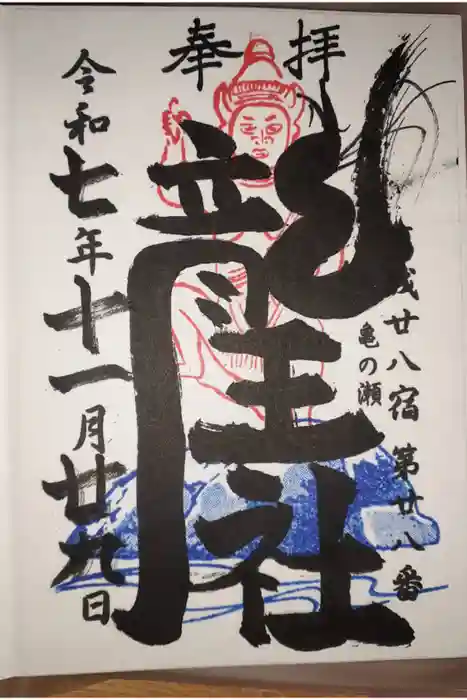 奉拝
城廿八宿第廿八番
亀の瀬
龍王社
令和七年十一月廿九日